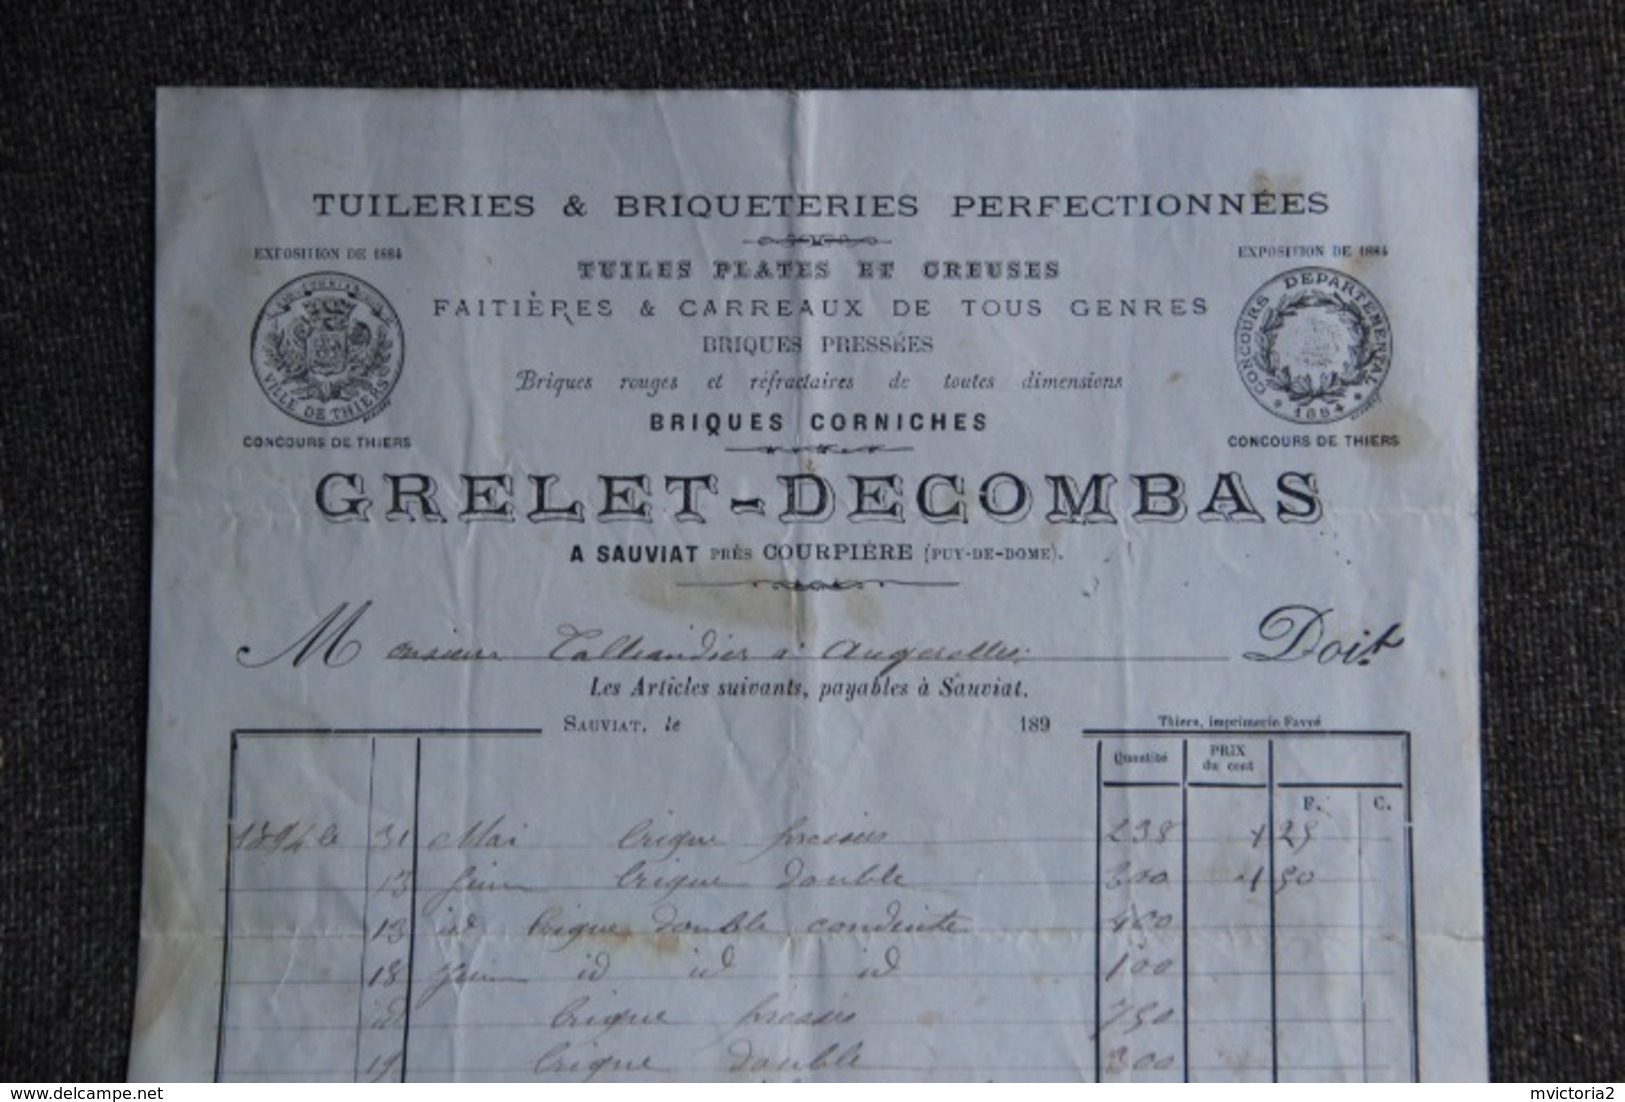 TUILERIES & BRIQUETERIES PERFECTIONNÉES
EXPOSITION DE 1884
EXPOSITION DE 1884
TUILES PLATES ET CREUSES
FAITIÈRES & CARREAUX DE TOUS GENRES
BRIQUES PRESSÉES
Briques rouges et réfractaires de toutes dimensions
BRIQUES CORNICHES
VILLE DE THIERS
CONCOURS DEPARTEMENTAL
* 1884 *
CONCOURS DE THIERS
CONCOURS DE THIERS
GRELET-DECOMBAS
A SAUVIAT PRÈS COURPIÈRE (PUY-DE-DOME).
Monsieur à Augerolles Doit
Les Articles suivants, payables à Sauviat.
SAUVIAT, le 189
Thiers, imprimerie Favyé
Quantité PRIX du cent
F. C.
1894 le 31 Mai brique pressées 298 4 25
13 juin brique double 300 4 50
13 id brique double conduite 400
18 juin id id id 100
id brique pressées 750
19 brique double 300
delcampe.net
mvictoria2